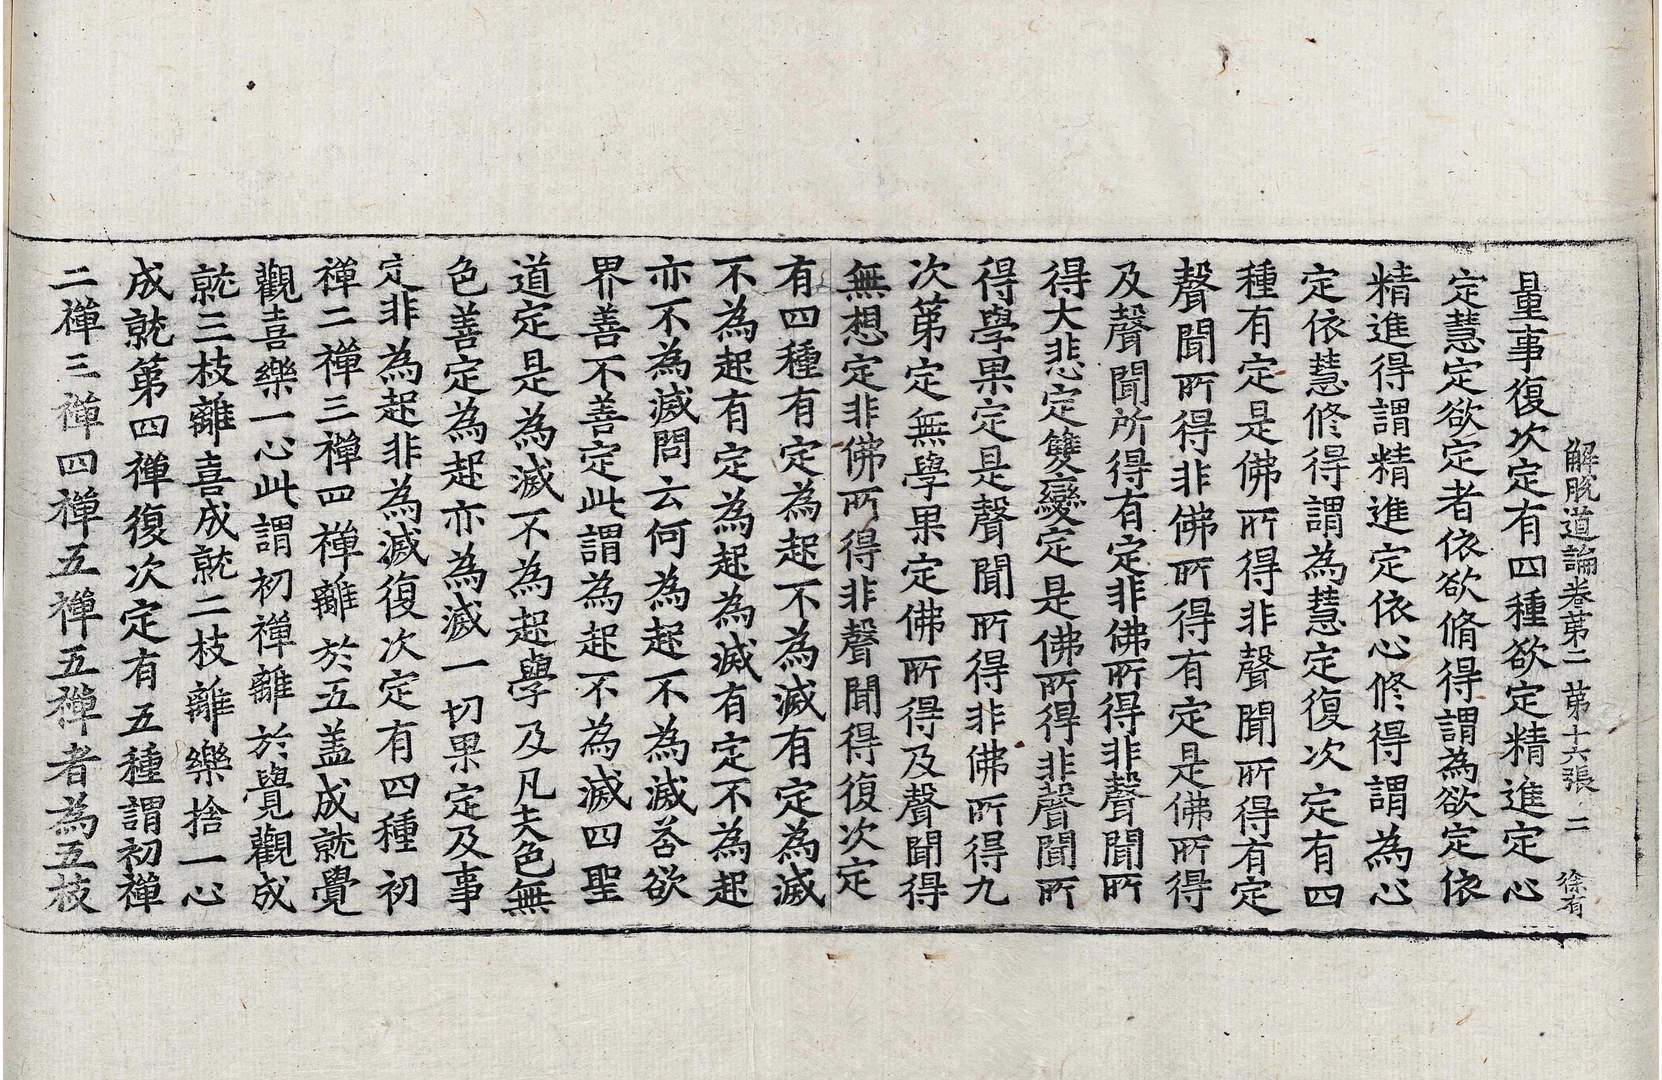 解脫道論卷第二 第十六張 二 徐有
量事復次定有四種欲定精進定心
定慧定欲定者依欲脩得謂為欲定依
精進得謂精進定依心修得謂為心
定依慧修得謂為慧定復次定有四
種有定是佛所得非聲聞所得有定
聲聞所得非佛所得有定是佛所得
及聲聞所得有定非佛所得非聲聞所
得大悲定雙變定是佛所得非聲聞所
得學果定是聲聞所得非佛所得九
次第定無學果定佛所得及聲聞得
無想定非佛所得非聲聞得復次定
有四種有定為起不為滅有定為滅
不為起有定為起為滅有定不為起
亦不為滅問云何為起不為滅荅欲
界善不善定此謂為起不為滅四聖
道定是為滅不為起學及凡夫色無
色善定為起亦為滅一切果定及事
定非為起非為滅復次定有四種初
禪二禪三禪四禪離於五盖成就覺
觀喜樂一心此謂初禪離於覺觀成
就三枝離喜成就二枝離樂捨一心
成就第四禪復次定有五種謂初禪
二禪三禪四禪五禪五禪者為五枝